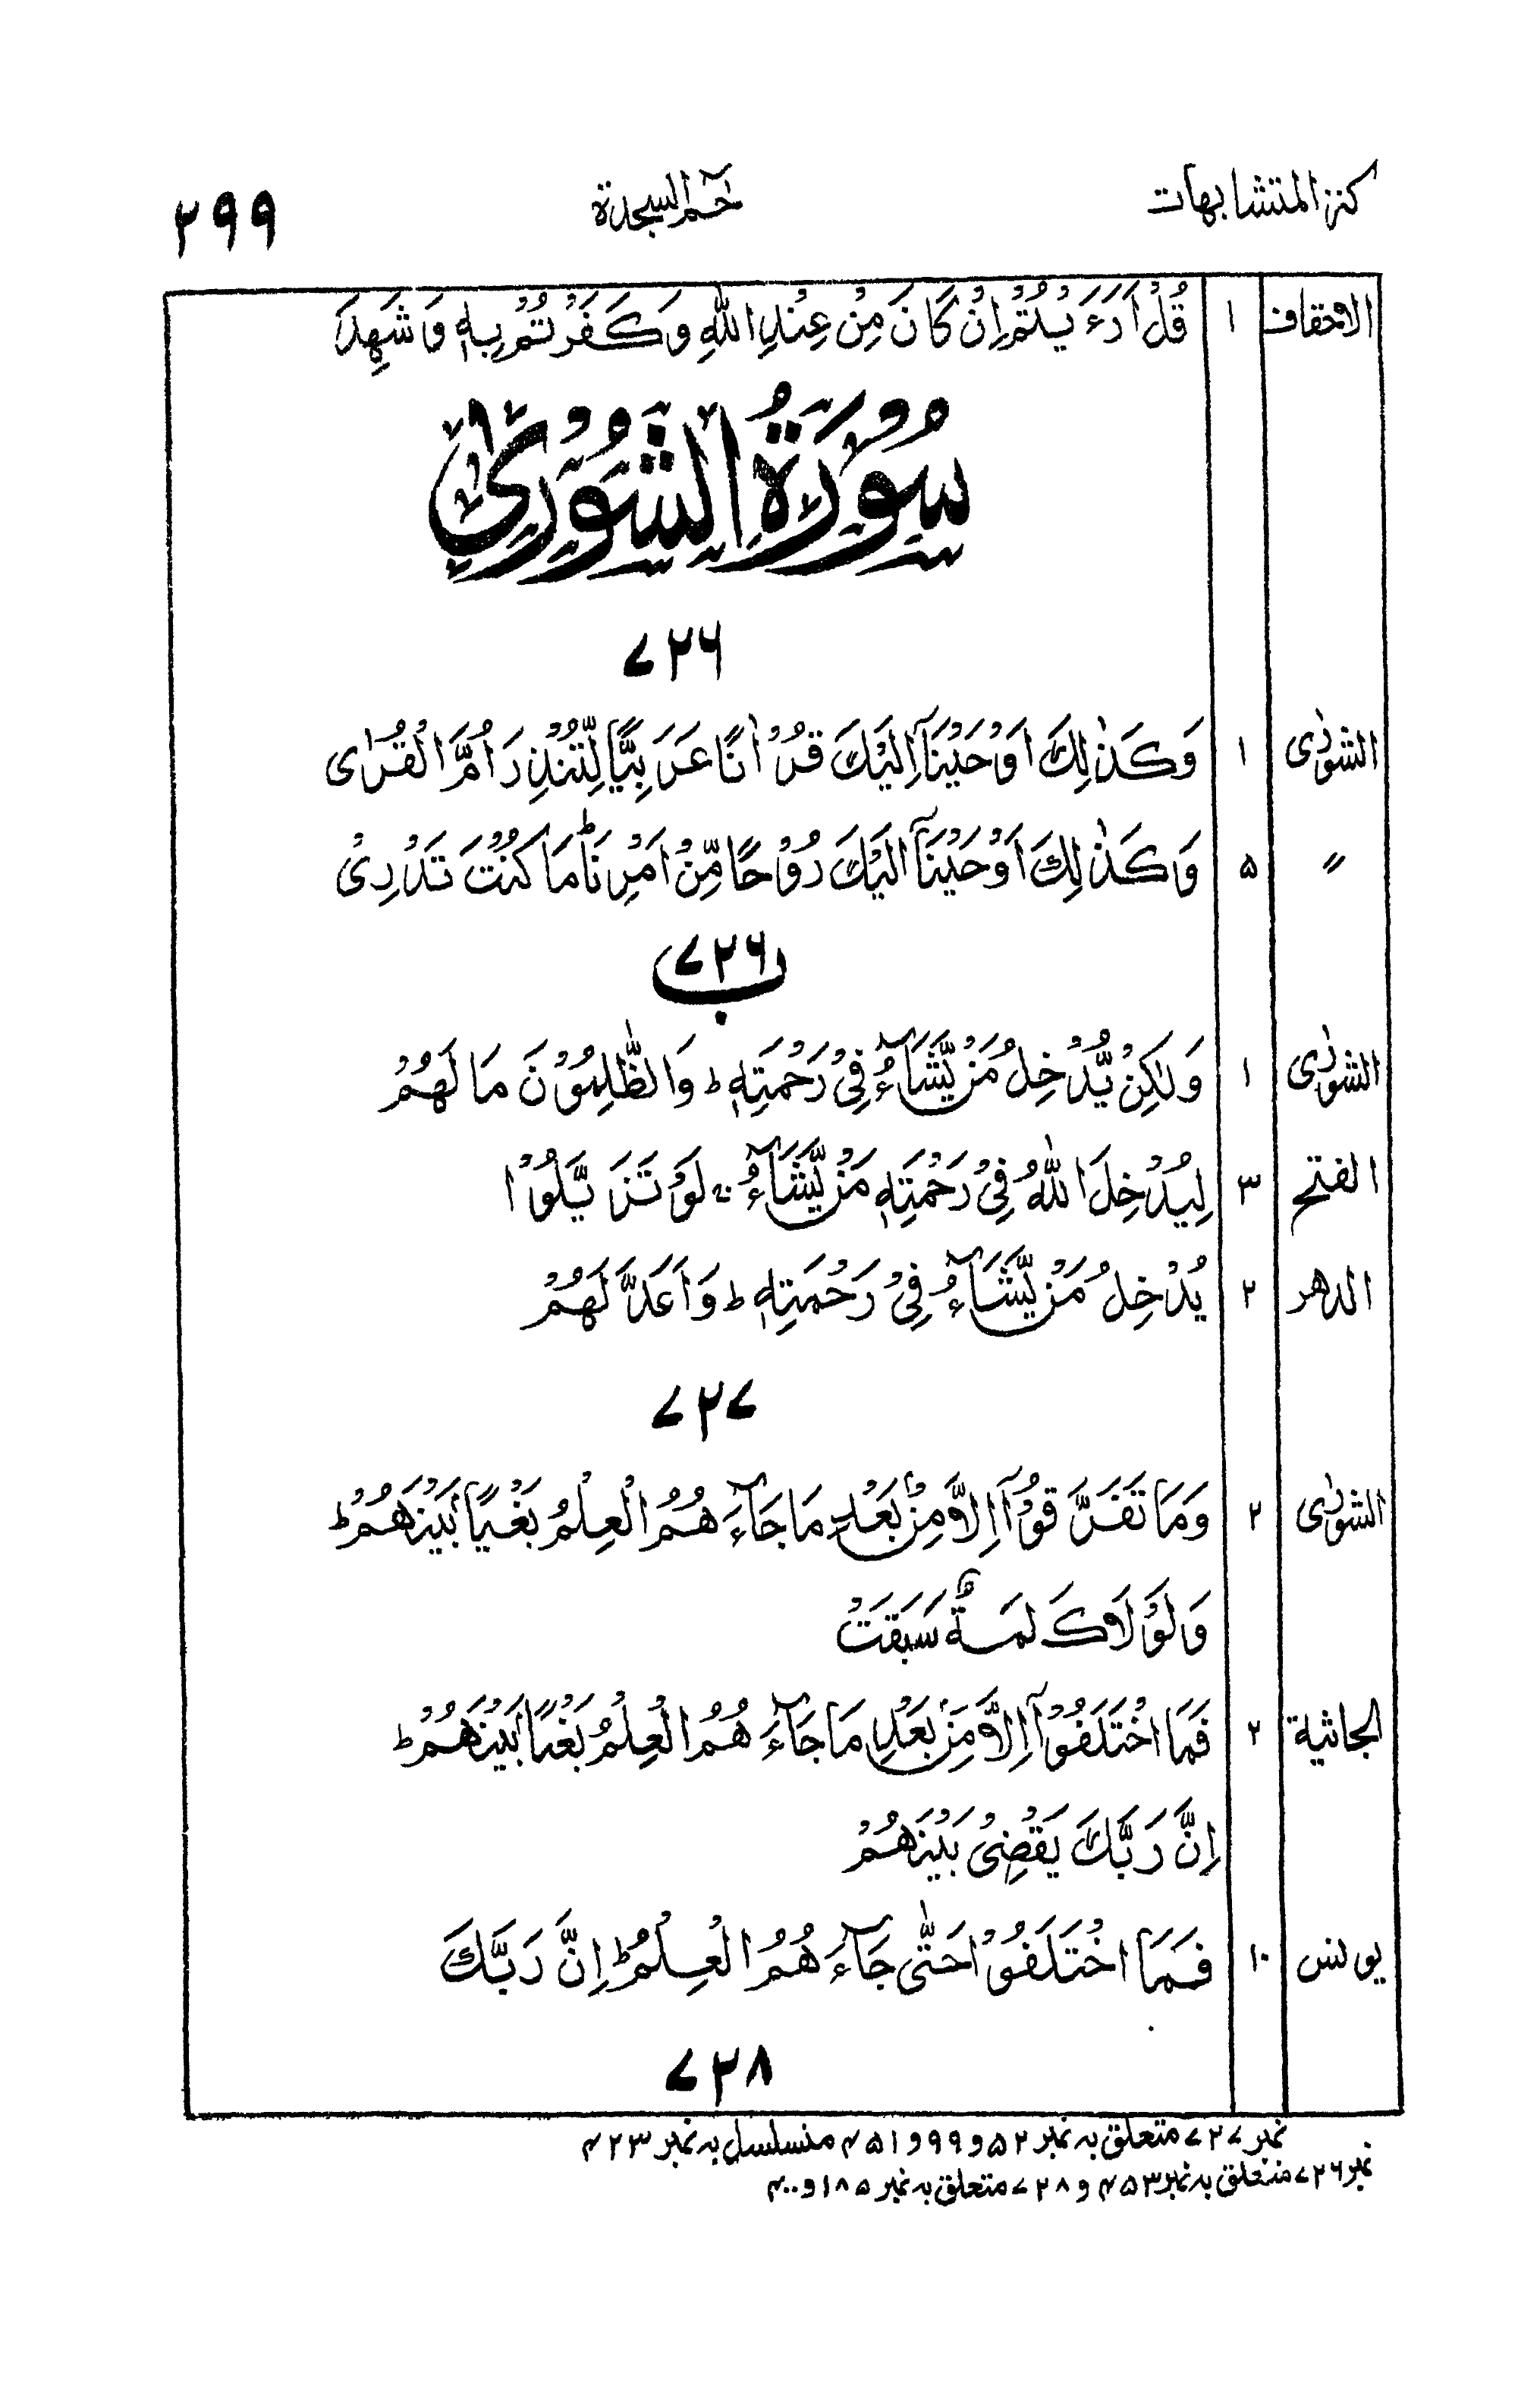 كنز المتشابهات حٰمٓ السجدة ۲۹۹
الاحقاف ۱ قُلْ اَرَءَيْتُمْ اِنْ كَانَ مِنْ عِنْدِ اللّٰهِ وَكَفَرْتُمْ بِهٖ وَشَهِدَ
سُوْرَةُ الشُّوْرٰى
۷۲۶
الشورٰى ۱ وَكَذٰلِكَ اَوْحَيْنَآ اِلَيْكَ قُرْاٰنًا عَرَبِيًّا لِّتُنْذِرَ اُمَّ الْقُرٰى
〃 ۵ وَكَذٰلِكَ اَوْحَيْنَآ اِلَيْكَ رُوْحًا مِّنْ اَمْرِنَا ؕ مَا كُنْتَ تَدْرِىْ
۷۲۶ ب
الشورٰى ۱ وَلٰكِنْ يُّدْخِلُ مَنْ يَّشَآءُ فِىْ رَحْمَتِهٖ ؕ وَالظّٰلِمُوْنَ مَا لَهُمْ
الفتح ۳ لِيُدْخِلَ اللّٰهُ فِىْ رَحْمَتِهٖ مَنْ يَّشَآءُ ۚ لَوْ تَزَيَّلُوْا
الدهر ۲ يُدْخِلُ مَنْ يَّشَآءُ فِىْ رَحْمَتِهٖ ؕ وَاَعَدَّ لَهُمْ
۷۲۷
الشورٰى ۲ وَمَا تَفَرَّقُوْۤا اِلَّا مِنْۢ بَعْدِ مَا جَآءَهُمُ الْعِلْمُ بَغْيًۢا بَيْنَهُمْ ؕ
وَلَوْلَا كَلِمَةٌ سَبَقَتْ
الجاثية ۲ فَمَا اخْتَلَفُوْۤا اِلَّا مِنْۢ بَعْدِ مَا جَآءَهُمُ الْعِلْمُ بَغْيًۢا بَيْنَهُمْ ؕ
اِنَّ رَبَّكَ يَقْضِىْ بَيْنَهُمْ
يونس ۱۰ فَمَا اخْتَلَفُوْا حَتّٰى جَآءَهُمُ الْعِلْمُ ؕ اِنَّ رَبَّكَ
۷۲۸
نمبر ۷۲۷ متعلق بہ نمبر ۵۲ و ۹۹ و ۴۵۱ منسلسل بہ نمبر ۴۲۳
نمبر ۷۲۶ متعلق بہ نمبر ۴۵۳ و ۷۲۸ متعلق بہ نمبر ۱۸۵ و ۴۰۰